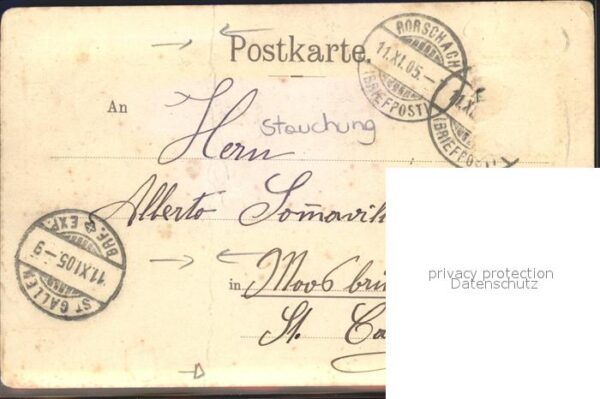 Postkarte.
RORSCHACH
11.XI.05.–
(BRIEFPOST)
11.XI
(BRIEFPOST)
An
Stauchung
Herrn
Alberto
BRF. & EXP.
11.XI.05.–9
ST GALLEN
in Moosbrü
St. Ga
privacy protection
Datenschutz